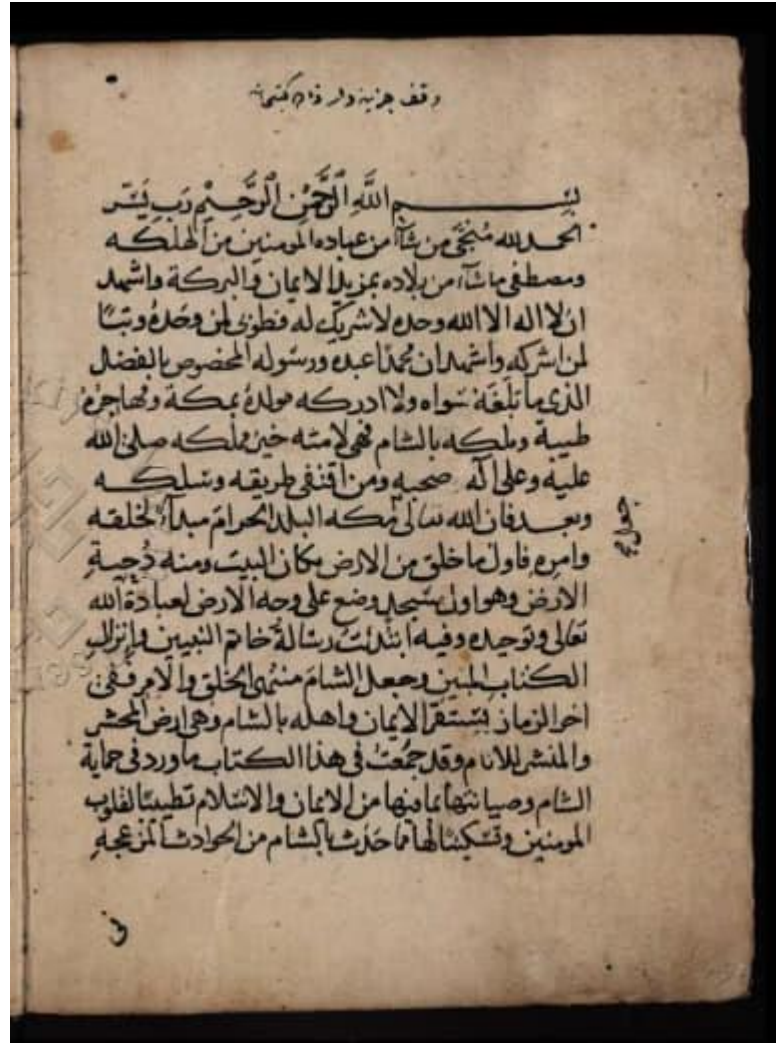 وقف خزينه دار
بسم اللَّهِ الرَّحْمٰنِ الرَّحِيْمِ رَبِ يَسِّر
الحمد لله مُنْجِّي من شآأ من عباده المومنين من الهلكه
ومصطفى ما شآء من بلاده بمزيد الايمان والبركة واشهد
ان لا اله الا الله وحده لا شريك له فطوبى لمن وحَّدهُ وتبًّا
لمن اشركه واشهد ان محمدًا عبده ورسوله المخصوص بالفضل
الذى ما بَلَغَهُ سواه ولا ادركه مولدهُ بمكة ومهاجرهُ
طيبة وملكه بالشام فهى لامته خير مملكه صلى الله
عليه وعلى آله صحبهِ ومن اقتفى طريقه وسلكه
وبعد فان الله تعالى مكه البلد الحرام مبدآءً لخلقه
جعل
وامرِه فاول ما خلق من الارض مكان البيت ومنه دُحِيةِ
الارض وهو اول مسجد وضع على وجه الارض لعبادَةِ الله
تعالى وتوحيده وفيه ابتدئتْ رسالةُ خاتم النبيين وإنزال
الكتاب المبين وجعل الشامَ منتهى الخلق والامر ففى
اخر الزمان يستقر الايمان واهله بالشام وهى ارض المحشر
والمنشر للانام وقد جمُعتُ فى هذا الكتاب ما ورد فى حماية
الشام وصيانتها بما فيها من الايمان والاسلام تطييبًا لقلوب
المومنين وتسكينًا لها مما حَدَثَ بالشام من الحوادث المزعجةِ
فى